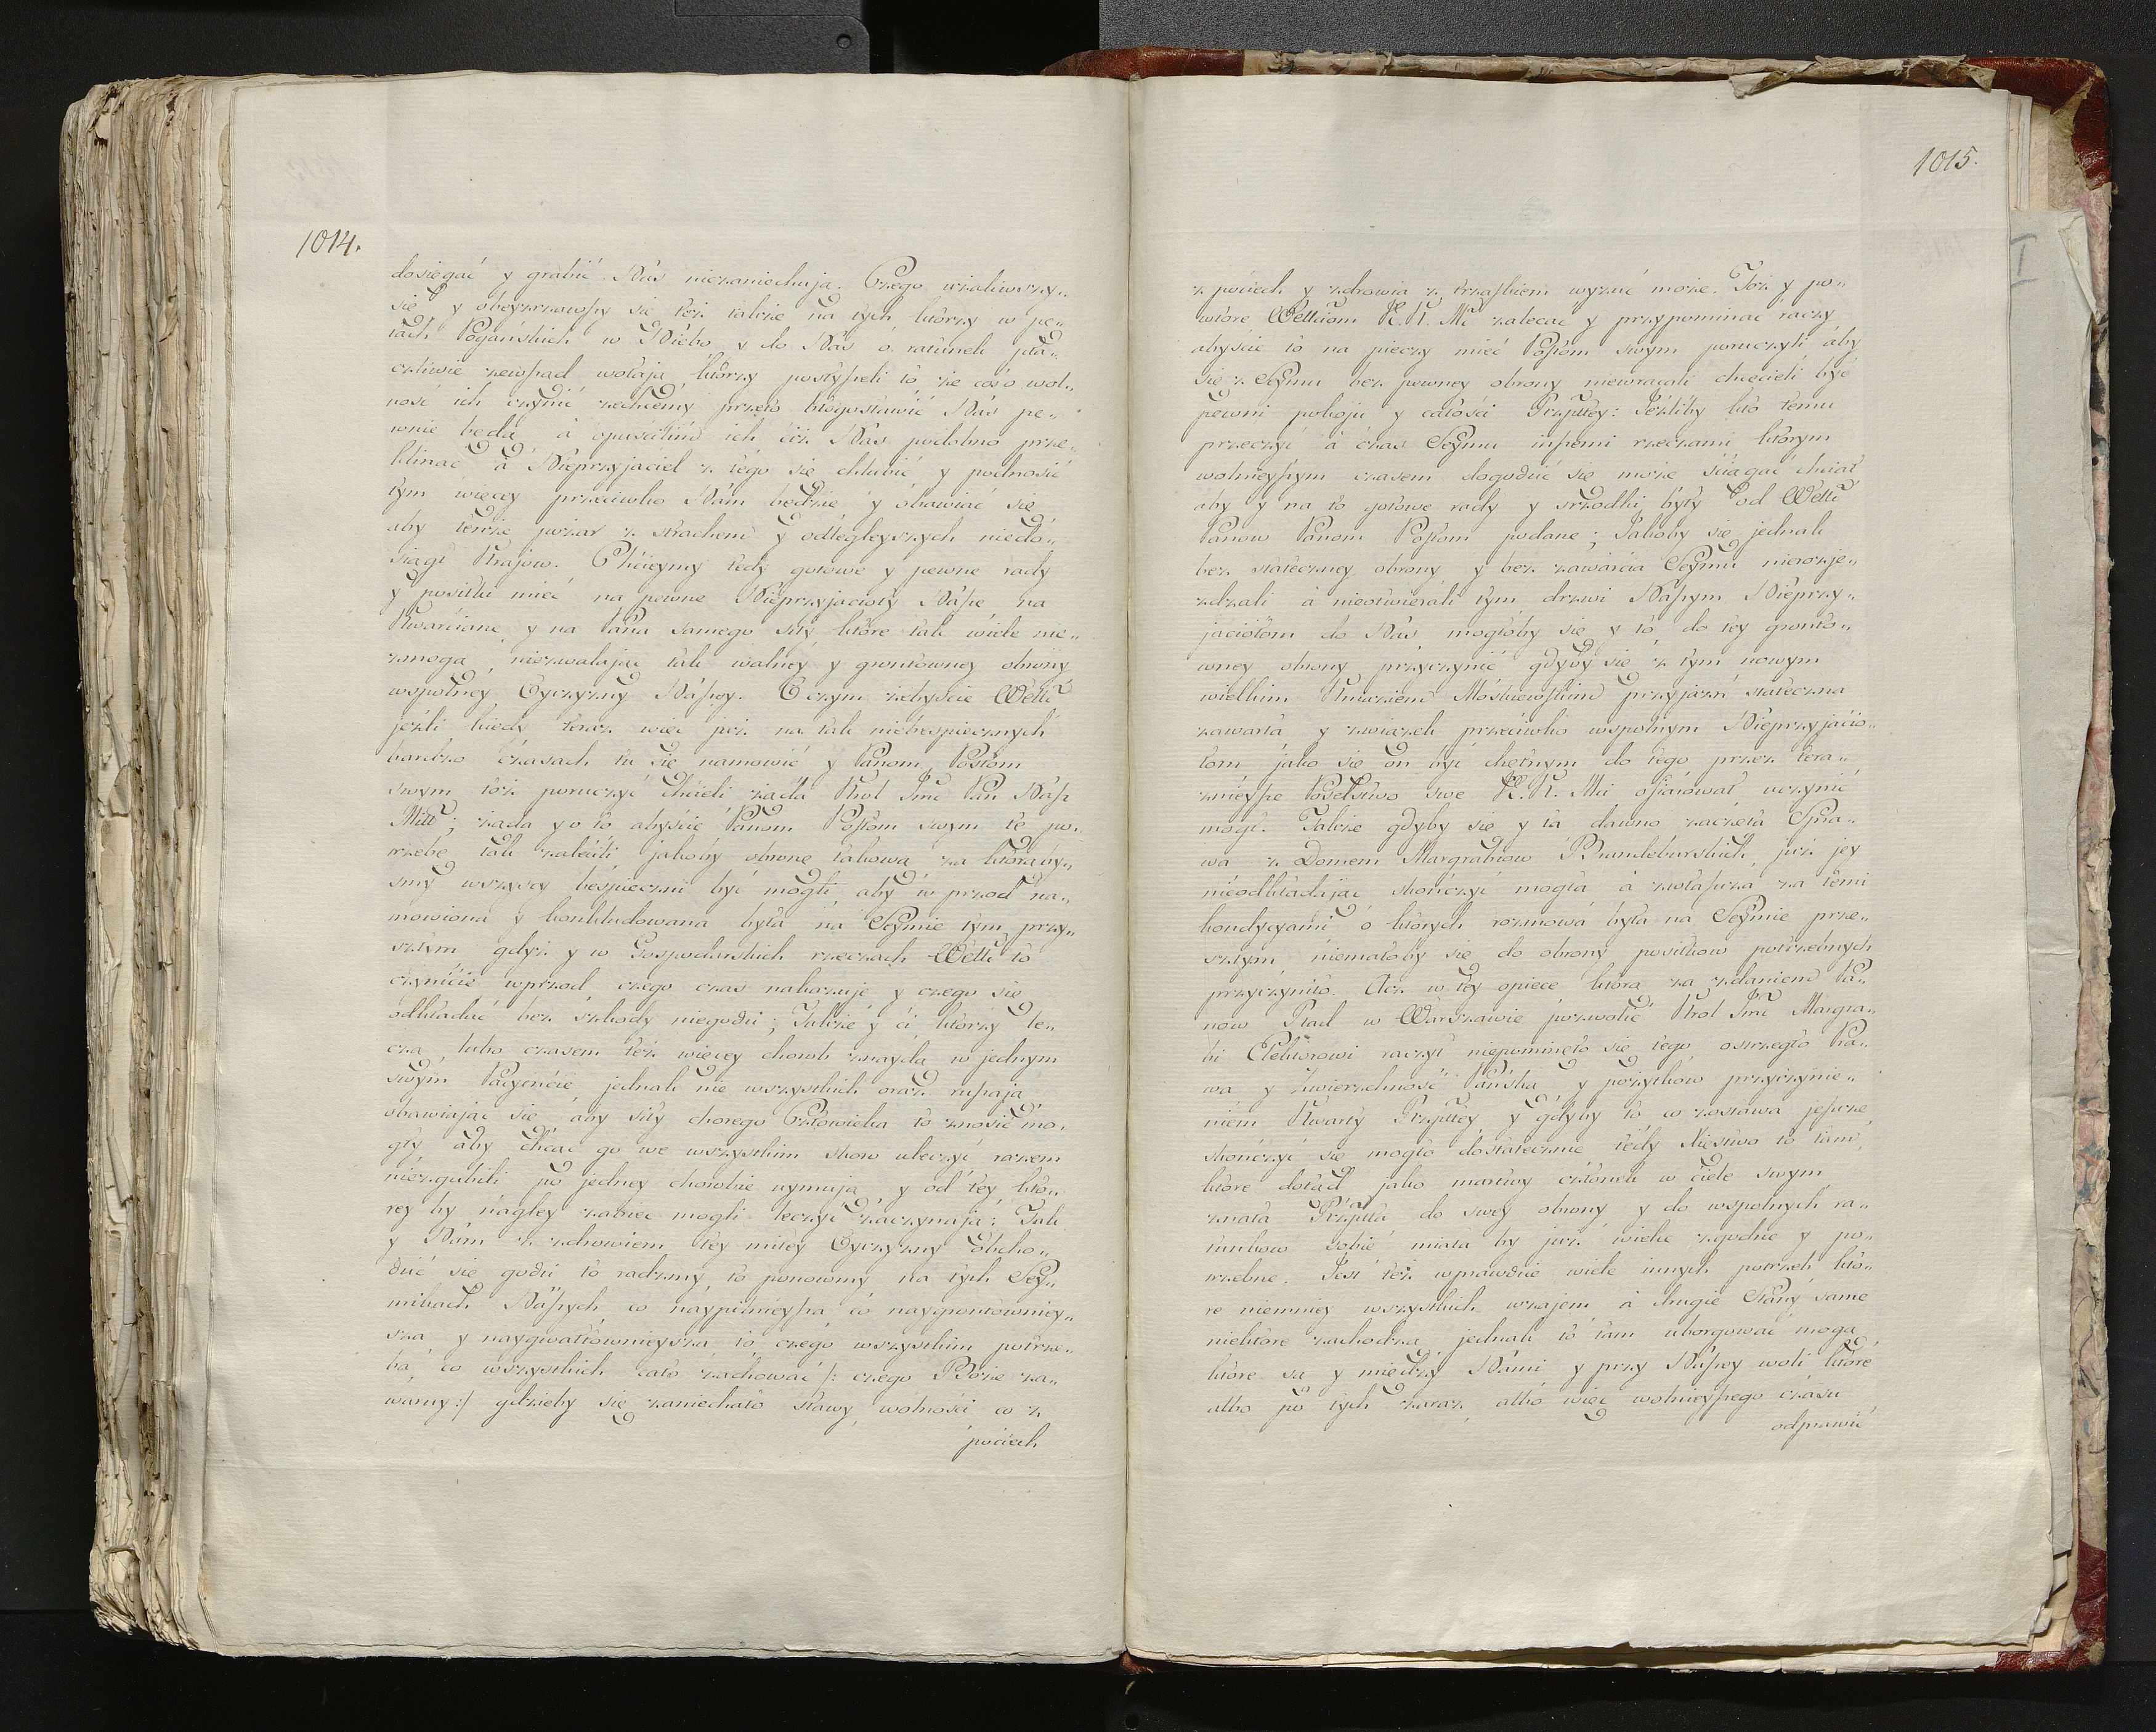 1014.
dosięgać y grabić Nas niezaniechują. Czego użaliwszy„
się y obeyrzawszy się też także na tych którzy w pę„
tach Pogańskich w Niebo y do Nas o ratunek pła„
czliwie zewsząd wołają którzy posłyszeli to że coś o wol„
ność ich czynić zechcemy przeto błogosławić Nas pe„
wnie będą á opuścilim ich ciż Nas podobno prze„
klinać á Nieprzyjaciel z tego się chlubić y podnosić
tym więcey przeciwko Nam będzie y obawiać się
aby tenże pożar z strachem y odległeyszych niedo„
siągł Krajow. Chcieymy tedy gotowe y pewne rady
y posiłki mieć na pewne Nieprzyjacioły Nasze, na
Kwarciane y na Pana samego siły które tak wiele nie„
zmogą, niezwalając tak walney y grontowney obrony
wspolney Oyczyzny Naszey. O czym żebyście WMć
jeżli kiedy teraz więc już na tak niebezpiecznych
bardzo czasach tu się namowić y Panom Posłom
swym toż poruczyć chcieli żąda Krol Jmć Pan Nasz
Miłł; żąda y o to abyście Panom Posłom swym tę po„
trzebę tak zalecili jakoby obronę takową za którąby„
smy wszyscy bespieczni być mogli aby w przod na„
mowiona y konkludowana była na Seymie tym przy„
szłym gdyż y w Gospodarskich rzeczach WMć to
czynicie wprzod czego czas nakazuje y czego się
odkładać bez szkody niegodzi; Także y ci którzy le„
czą, lubo czasem też więcey chorob znaydą w jednym
swym Pacyencie jednak nie wszystkich oraz ruszają
obawiając się aby siły chorego Człowieka to znosić mo„
gły aby chcąc go we wszystkim skoro uleczyć razem
niezgubili po jedney chorobie uymują y od tey kto„
rey by nagley zabieć mogli leczyć zaczynają: Tak
y Nam z zdrowiem tey miłey Oyczyzny obcho„
dzić się godzi to radzmy, to ponowmy na tych Sey„
mikach Naszych, co naypilnieysza co naygrontowniey„
sza y naygwałtownieysza to czego wszystkim potrze„
ba co wszystkich cało zachować /: czego Boże za„
waruy :/ gdzieby się zaniechało sławy wolności co z
pociech
1015.
z pociech y zdrowia z trzaskiem wyzuć może. Toż y po„
wtore Wmciom K. J. Mć zalecać y przypominać raczy
abyście to na pieczy mieć Posłom swym poruczyli aby
się z Seymu bez pewney obrony niewracali chcecieli być
pewni pokoju y całości Rzpltey: Jeżliby kto temu
przeczyć á czas Seymu inszemi rzeczami ktorym
wolnieyszym czasem dogodzić się może ściągać chciał
aby y na to gotowe rady y srzodki były od WMć
Panow Panom Posłom podane; Jakoby się jednak
bez stateczney obrony y bez zawarcia Seymu nierozje„
zdzali á nieotwierali tym drzwi Naszym Nieprzy„
jaciołom do Nas mogłoby się y to do tey gronto„
wney obrony przyczynić gdyby się z tym nowym
wielkim Kniaziem Moskiewskim przyjazń stateczna
zawarta y związek przeciwko wspolnym Nieprzyjacio„
łom jako się on być chętnym do tego przez tera„
znieysze Poselstwo swe K. J. Mci ofiarował, uczynić
mogł. Także gdyby się y ta dawno zaczęta Spra„
wa z Domem Margrabiow Brandeburskich, już jey
nieodkładając skończyć mogła á zwłaszcza za temi
kondycyami o ktorych rozmowa była na Seymie prze„
szłym niemałoby się do obrony posiłkow potrzebnych
przyczyniło. Acz w tey opiece ktorą za zdaniem Pa„
now Rad w Warszawie pozwolić Krol Jmć Margra„
bi Elektorowi raczył niepominęło się tego ostrzegło Pra„
wa y zwierzchność Pańska y pożytkow przyczynie„
niem Kwarty Rzpltey y gdyby to co zostawa jeszcze
skończyć się mogło dostatecznie tedy Xięstwo to tam
ktore dotąd jako martwy członek w ciele swym
znała Rzplta do swey obrony y do wspolnych ra„
tunkow sobie miała by już wiele zgodne y po„
trzebne. Jest też wprawdzie wiele innych potrzeb kto„
re niemniey wszystkich wzajem á drugie Stany same
niektore zachodzą, jednak to tam uborgować mogą
ktore są y miedzy Nami y przy Naszey woli ktore
albo po tych zaraz albo więc wolnieyszego czasu
odprawić